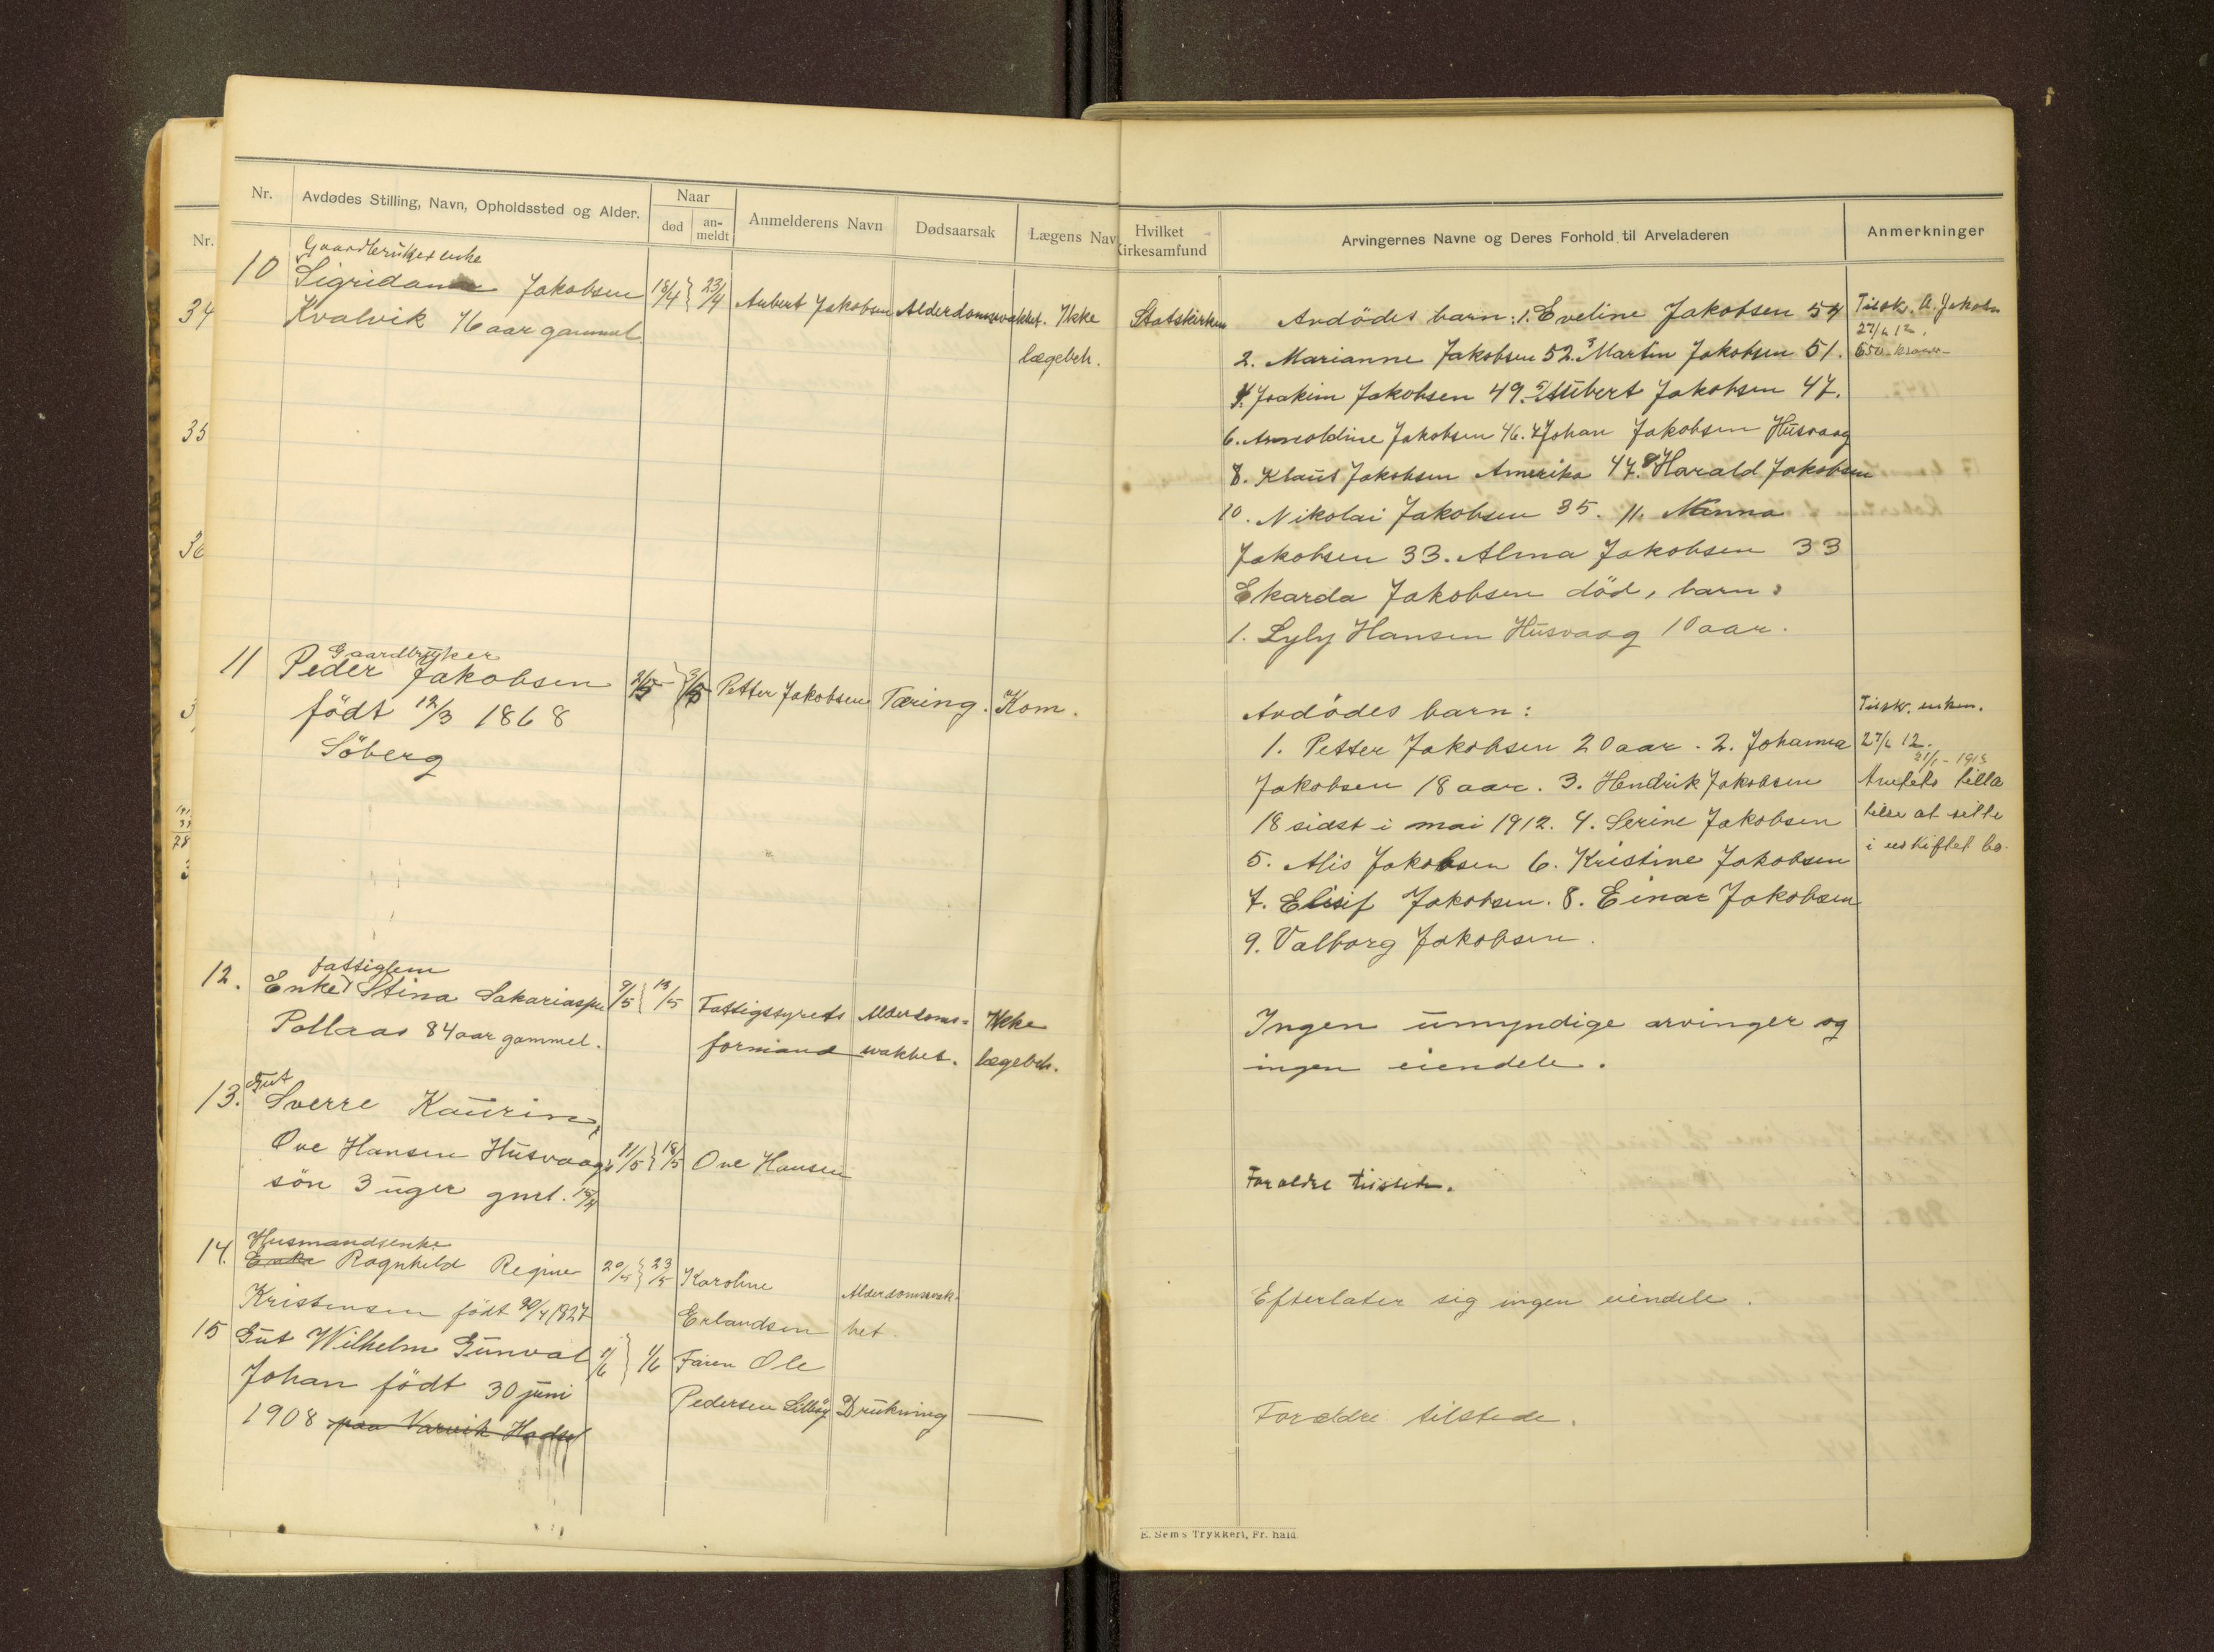 Nr.
Avdødes Stilling, Navn, Opholdssted og Alder.
Naar
død
an-
meldt
Anmelderens Navn
Dødsaarsak
Lægens Nav
Nr.
34
35
36
10
Gaardbrukerenke
Jakobsen
Kvalvik 76 aar gammel
18/4
23/4
Aubert Jakobsen
Alderdomssvakhet.
Ikke
lægebeh.
11
Gaardbruker
Peder Jakobsen
født 12/3 1868
Söberg
2/5
3/5
Petter Jakobsen
Tæring.
Kom.
12.
fattiglem
Enke Stina Sakariasen
Pollaas 84 aar gammel.
9/5
13/5
Fattigstyrets
formand
Alderdoms=
svakhet.
Ikke
lægebeh.
13.
Gut
Sverre Kaurin,
Ove Hansen Husvaags
sön 3 uger gml.
11/5
18/5
Ove Hansen
14.
Husmandsenke
Enke Ragnhild Regine
Kristensen født 20/4 1827
20/5
23/5
Karoline
Erlandsen
Alderdomssvak-
het.
15
Gut Wilhelm Gunval
Johan födt 30 juni
1908 paa Varvik Hadsel
1/6
Faren Ole
Pedersen
Drukning
Hvilket
Kirkesamfund
Arvingernes Navne og Deres Forhold til Arveladeren
Anmerkninger
Statskirken
Avdödes barn: 1. Eveline Jakobsen 54
2. Marianne Jakobsen 52. 3 Martin Jakobsen 51.
4. Joakim Jakobsen 49. 5 Aubert Jakobsen 47.
6. Arnoldine Jakobsen 46. 7 Johan Jakobsen Husvaag
8. Klaus Jakobsen Amerika 47. 9 Harald Jakobsen
10. Nikolai Jakobsen 35. 11. Minna
Jakobsen 33. Alma Jakobsen 33
Ekarda Jakobsen död, barn:
1. Lyly Hansen Husvaag 10 aar.
Tilsk. A. Jakobsn
27/6 12.
650 kroner
Avdödes barn:
1. Petter Jakobsen 20 aar. 2. Johanna
Jakobsen 18 aar. 3. Hendrik Jakobsen
18 sidst i mai 1912. 4. Serine Jakobsen
5. Alis Jakobsen 6. Kristine Jakobsen
7. Elisif Jakobsen. 8. Einar Jakobsen
9. Valborg Jakobsen.
Tilsk. enken.
27/6 12.
21/1 - 1913
tilla
telse at sitte
i uskiftet bo.
Ingen umyndige arvinger og
ingen eiendele.
Foraldre tilstede.
Efterlater sig ingen eiendele.
Forældre tilstede.
E. Sems Trykkeri, Fr.hald.